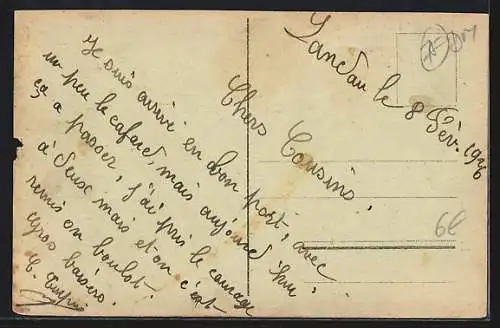 Landau le 8 Fév. 1926
Chers Cousins,
Je suis arrivé en bon port, avec
un peu le cafard, mais aujourd'hui
ça a passer, j'ai pris le courage
à deux mais et on c'est
remis en boulot.
Gros baisers.
6€